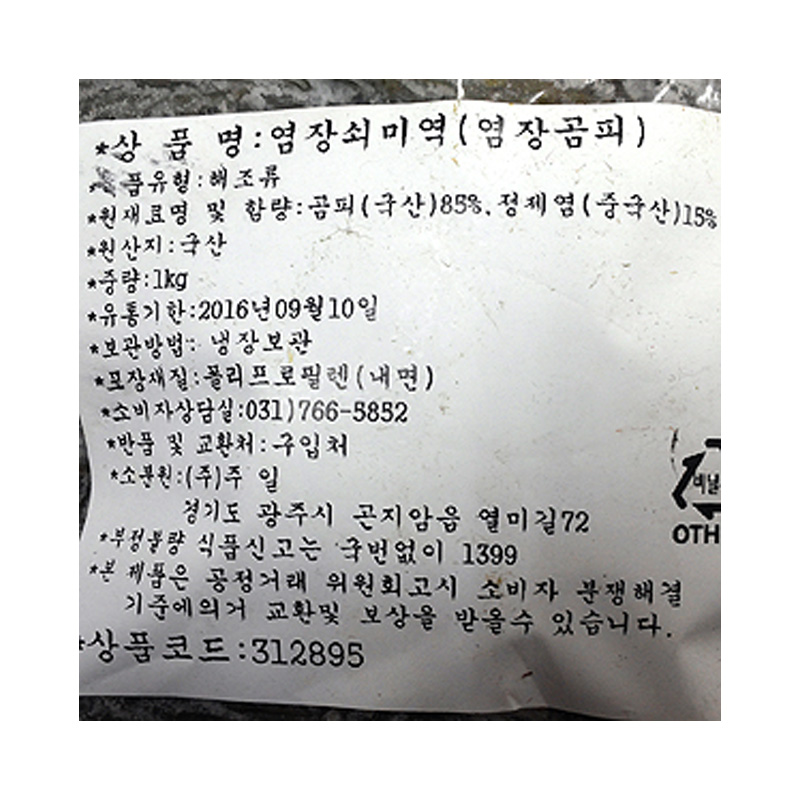 *상 품 명:염장쇠미역(염장곰피)
품유형:해조류
*원재료명 및 함량:곰피(국산)85%.정제염(중국산)15%
*원산지:국산
*중량:1kg
*유통기한:2016년09월10일
*보관방법: 냉장보관
*포장재질:폴리프로필렌(내면)
*소비자상담실:031)766-5852
*반품 및 교환처:구입처
*소분원:(주)주 일
경기도 광주시 곤지암읍 열미길72
*부정불량 식품신고는 국번없이 1399
*본 제품은 공정거래 위원회고시 소비자 분쟁해결
기준에의거 교환및 보상을 받을수 있습니다.
*상품코드:312895
비닐
OTH